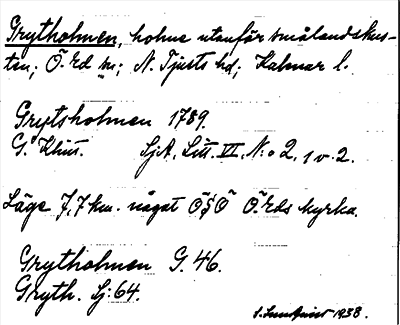 Grytholmen, holme utanför smålandskus-
ten; Ö. Ed sn; N. Tjusts hd; Kalmar l.
Grytsholmen 1789.
G. Klint. SjA, Litt. VI, N:o 2, 1 o. 2.
Läge 7,7 km. något ÖSÖ Ö. Eds kyrka.
Grytholmen G. 46.
Gryth. Sj: 64.
1938.